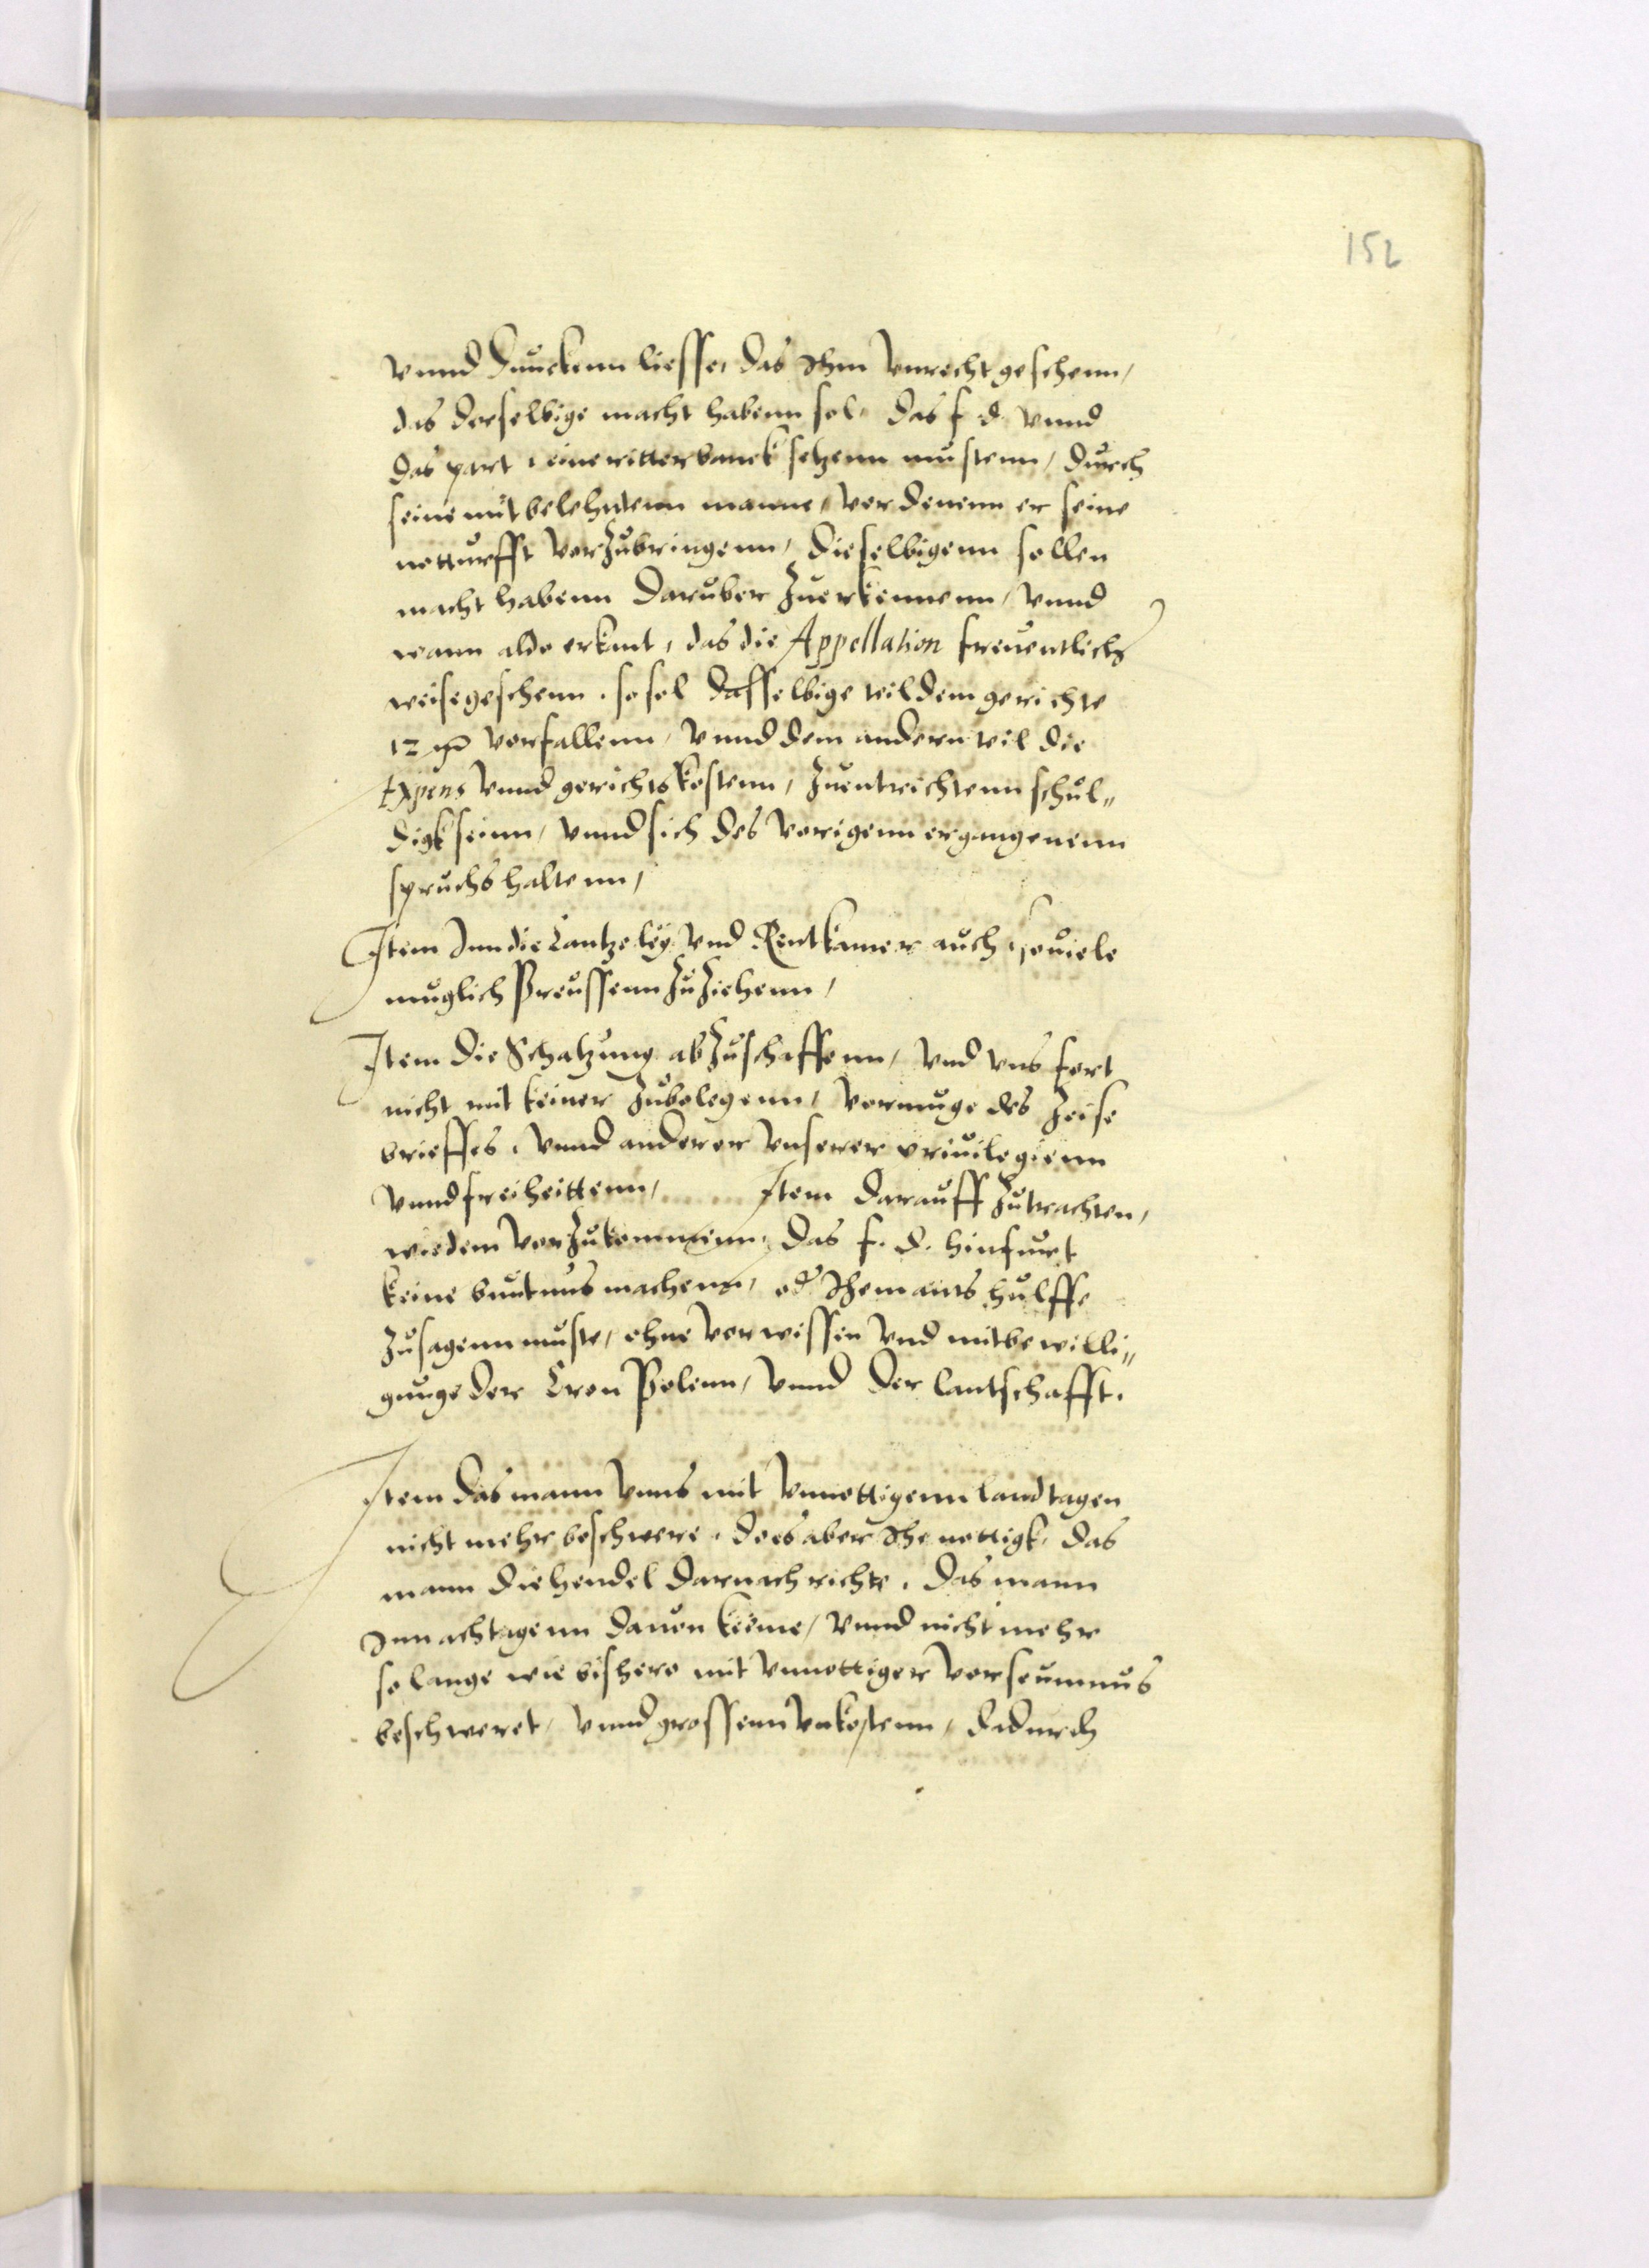 152
vnnd dunckenn liesse, das Ihm vnrecht geschenn,
das derselbige macht habenn sol, das f d. vnnd
das part, eine ritterbanck setzenn mustenn, durch
seine mitbelehntenn manne, vor denenn er seine
notturfft vorzubringenn, dieselbigenn sollen
macht habenn daruber zuerkennenn, vnnd
wann aldo erkant, das die Appellation freuentlich
weise geschenn, so sol dasselbige teil dem gerichte
12 mr vorfallenn, vnnd dem andern teil die
Expens vnnd gerichtskostenn, zuentrichtenn schul„
digk seinn, vnnd sich des vorigenn ergangenenn
spruchs haltenn,
Item Inn die Cantzeley vnd Rentkamer auch souiele
muglich Preussenn zuziehenn,
Item die Schatzung abzuschaffenn, vnd vns fort
nicht mit keiner zubelegenn, vormuge des Zeise
brieffes, vnnd anderer vnserer priuilegienn
vnnd freiheittenn, Item darauff zutrachten,
wie dem vorzukommenn, das f. d. hinfurt
keine buntnus machenn, od Ihemants hulffe
zusagenn muste, ohne vorwissen vnd mitbewilli„
gunge der Cron Polenn, vnnd der lantschafft.
Item das mann vnns mit vnnottigenn landtagen
nicht mehr beschwere, do es aber Ihe nottigk, das
mann die hendel darnach richte, das mann
Inn achtagenn dauon keme, vnnd nicht mehr
so lange wie bishero mit vnnottiger vorseumnus
beschweret, vnnd grossenn vnkostenn, dadurch